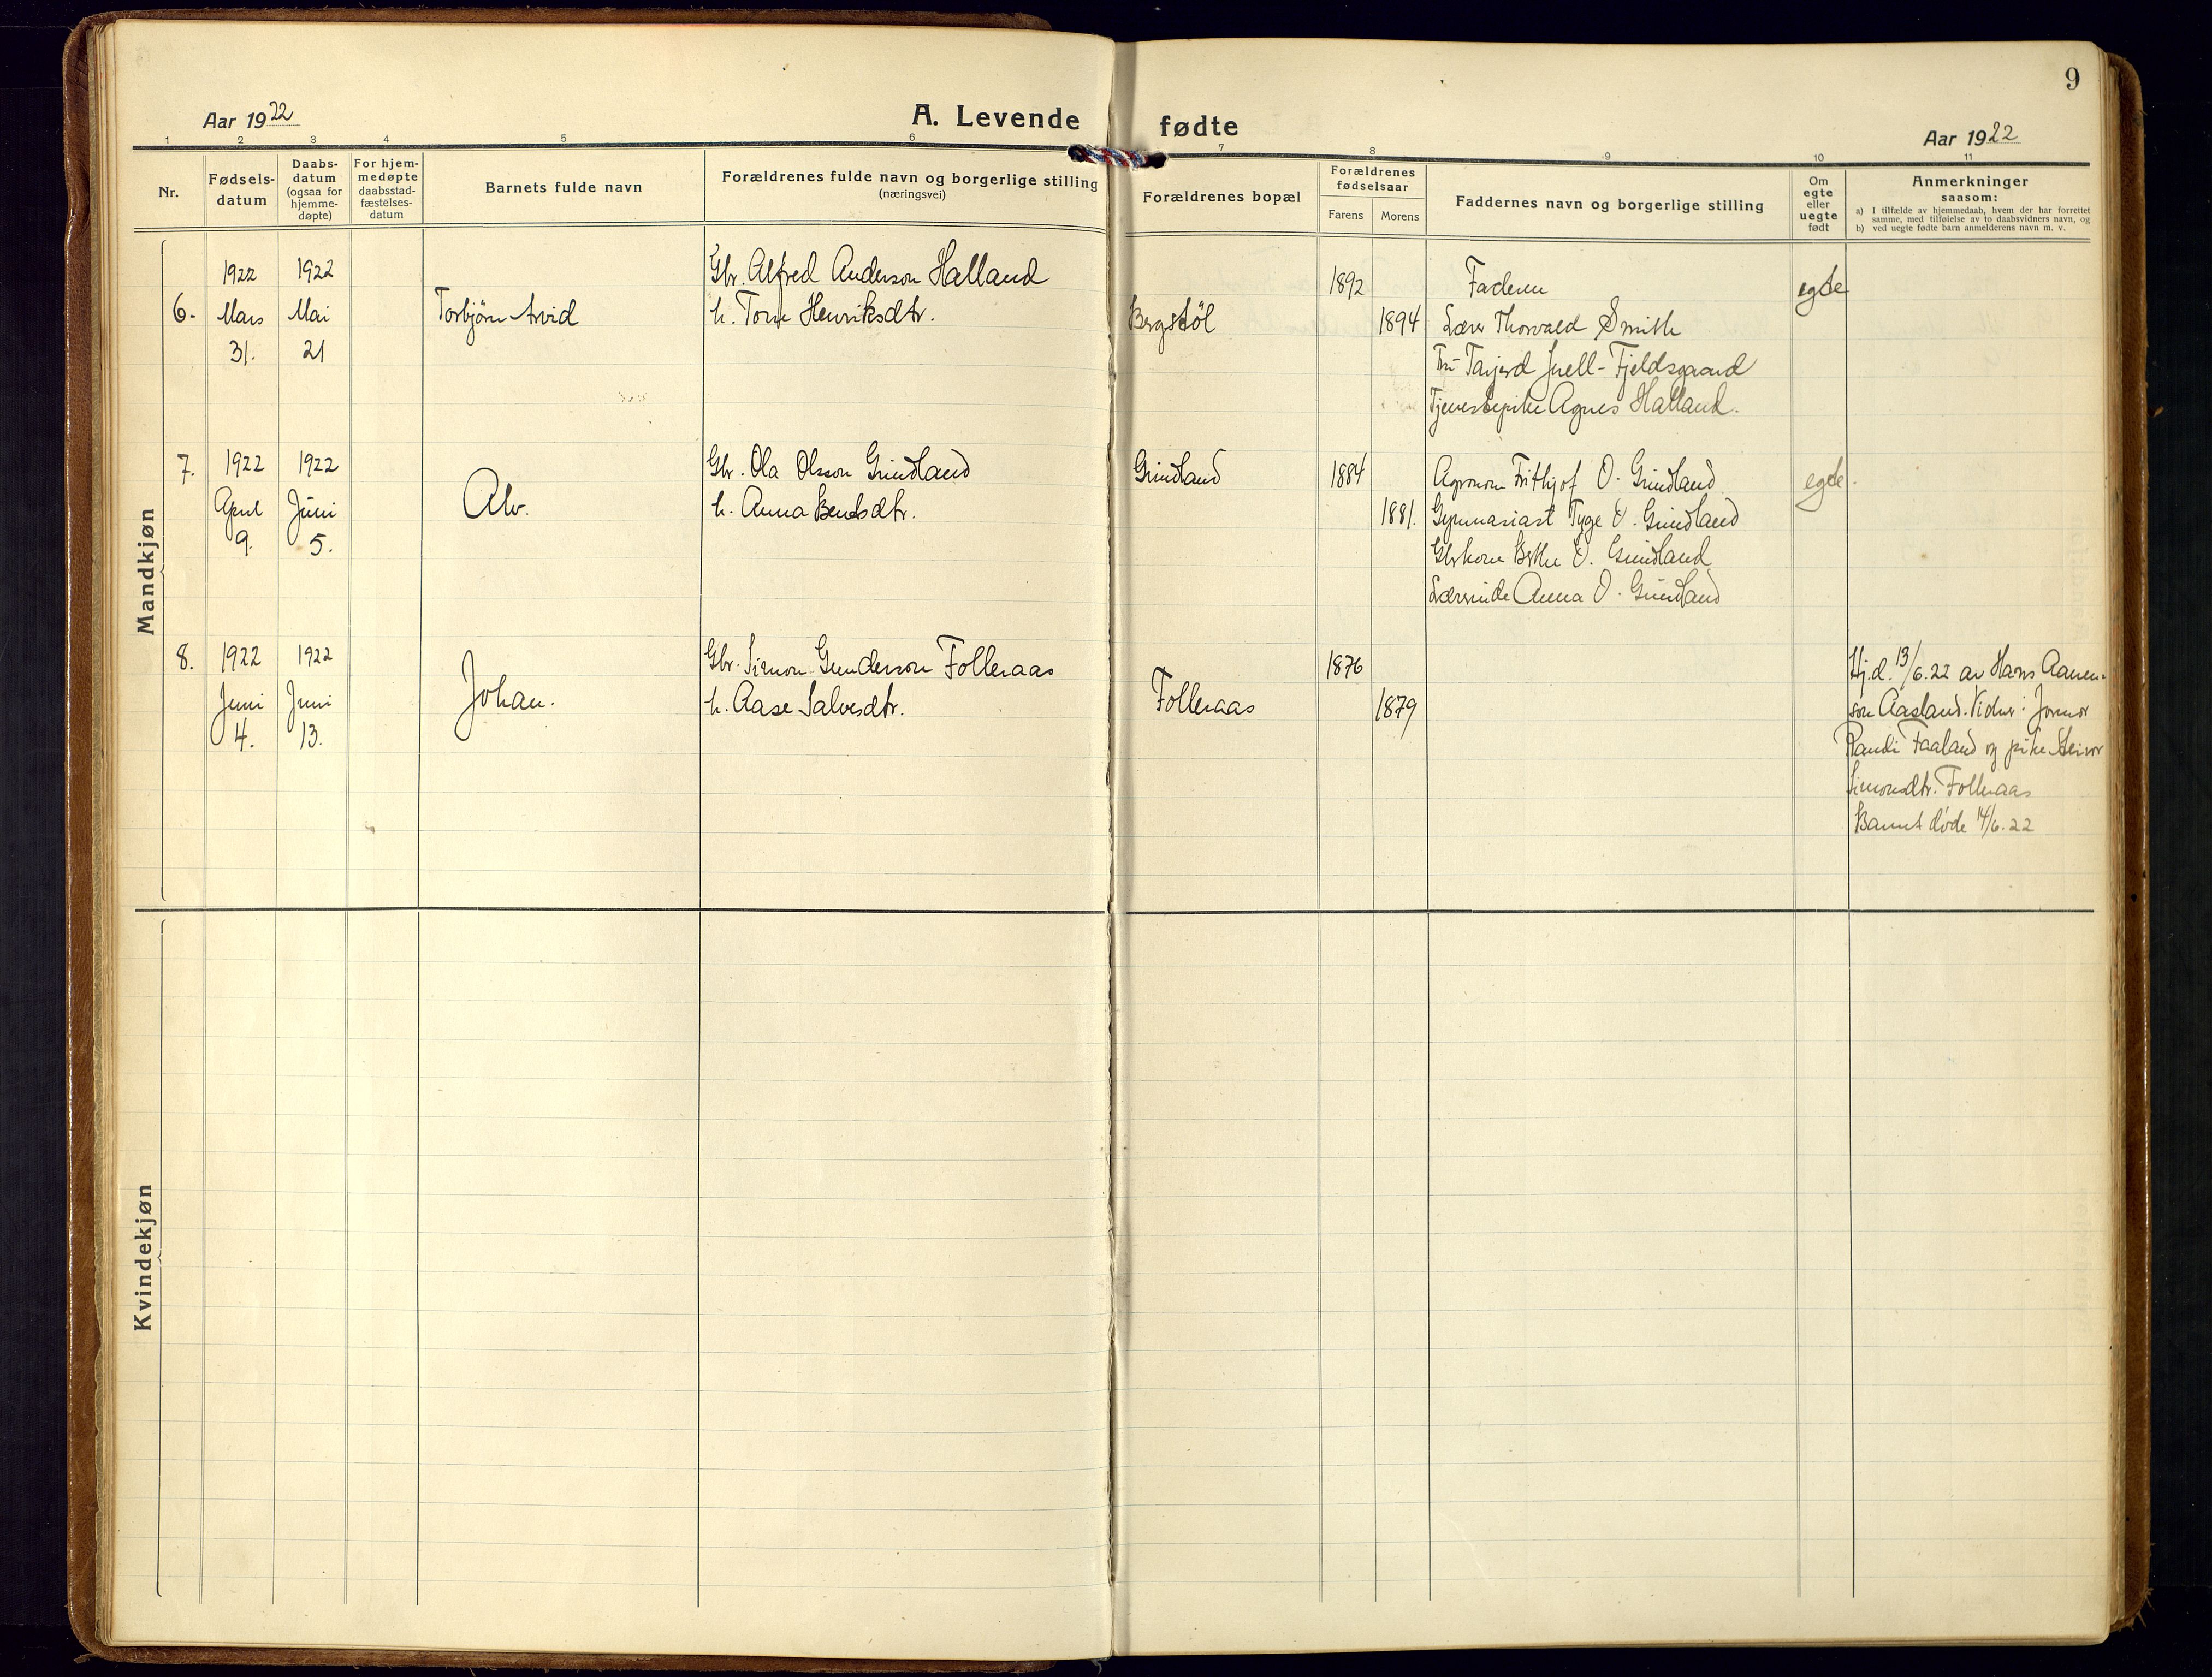 9
Aar 1922
A. Levende fødte
Aar 1922
1 2 3 4 5 6 7 8 9 10 11
Nr.
Fødsels-
datum
Daabs-
datum
(ogsaa for
hjemme-
døpte)
For hjem-
medøpte
daabsstad-
fæstelses-
datum
Barnets fulde navn
Forældrenes fulde navn og borgerlige stilling
(næringsvei)
Forældrenes bopæl
Forældrenes
fødselsaar
Farens Morens
Faddernes navn og borgerlige stilling
Om
egte
eller
uegte
født
Anmerkninger
saasom:
a) I tilfælde av hjemmedaab, hvem der har forrettet
samme, med tilføielse av to daabsvidners navn, og
b) ved uegte fødte barn anmelderens navn m. v.
Mandkjøn
6.
1922
Mars
31.
1922
Mai
21
Torbjørn Arvid
Gbr. Alfred Anderson Halland
h. Tone Henriksdtr.
Bergstöl
1892
1894
Faderen
Lærer Thorvald Smith
Fru Tarjerd Juell-Fjeldsgaard
Tjenestepike Agnes Halland.
egte
7.
1922
April
9.
1922
Juni
5.
Alv.
Gbr. Ola Olsson Grindland
h. Anna Bendsdtr.
Grindland
1884
1881.
Agronom Frithjof O. Grindland
Gymnasiast Tyge O. Grindland
Gbrkone Berthe O. Grindland
Lærerinde Anna O. Grindland
egte.
8.
1922
Juni
4.
1922
Juni
13.
Johan.
Gbr. Simon Gunderson Folleraas
h. Aase Salvesdtr.
Folleraas
1876
1879
Hj.d. 13/6.22 av Hans Aanen-
son Aasland. Vidner: Jormor
Randi Faaland og pike Steinvor
Simonsdtr. Folleraas
Barnet døde 14/6.22
Kvindekjøn